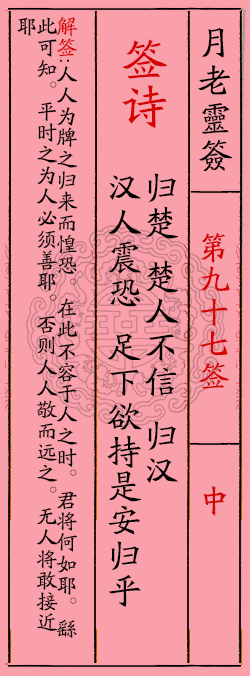 月老靈簽
第九十七签
中
签诗
归楚 楚人不信 归汉
汉人震恐 足下欲持是安归乎
解签:人人为牌之归来而惶恐。在此不容于人之时。君将何如耶。繇
此可知。平时之为人必须善耶。否则人人敬而远之。无人将敢接近
耶